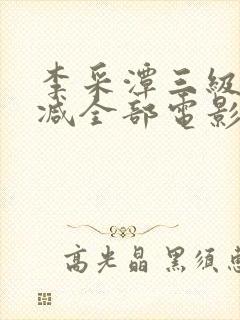 李采潭三級
減全部電影
高光晶 黑須